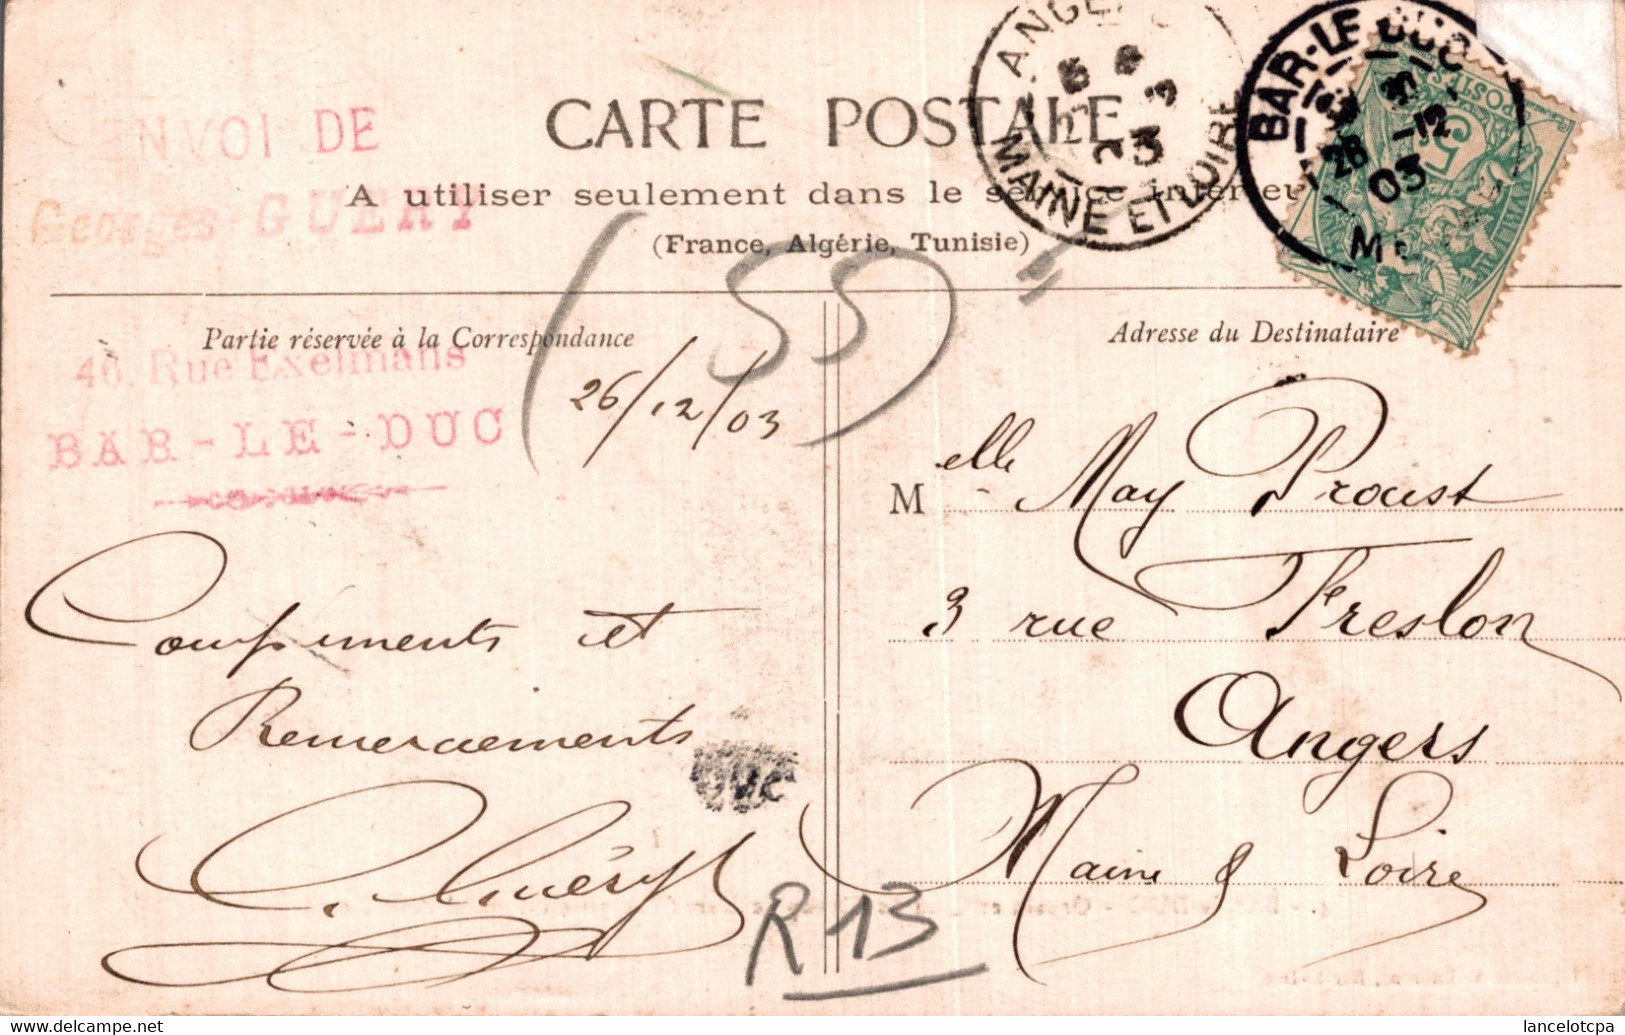 ENVOI DE
Georges GUERY
40, Rue Exelmans
BAR-LE-DUC
CARTE POSTALE
A utiliser seulement dans le service intérieur
(France, Algérie, Tunisie)
ANGERS
MAINE ET LOIRE
BAR-LE-DUC
26 -12
03
(55)
Partie réservée à la Correspondance
26/12/03
Compiments et
Remerciements
G. Guéry
R 13
Adresse du Destinataire
Melle May Proust
3 rue Freslon
Angers
Maine & Loire
www.delcampe.net
lancelotcpa